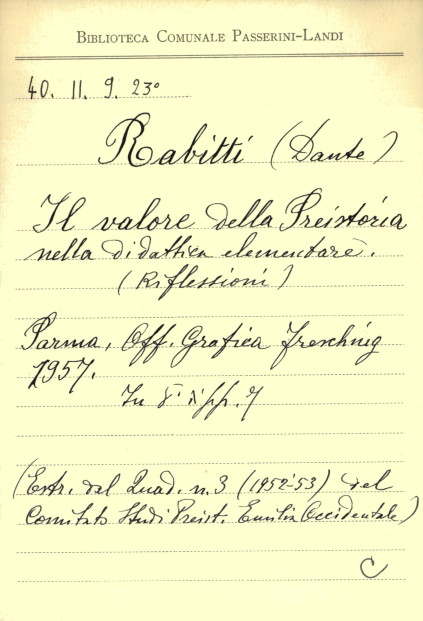 BIBLIOTECA COMUNALE PASSERINI-LANDI
40. 11. 9. 23°
Rabitti (Dante)
Il valore della Preistoria
nella didattica elementare.
(Riflessioni)
Parma, Off. Grafica Fresching
1957.
In 8° di pp. 7
(Estr. dal Quad. n. 3 (1952-53) del
Comitato Studi Preist. Emilia Occidentale)
C